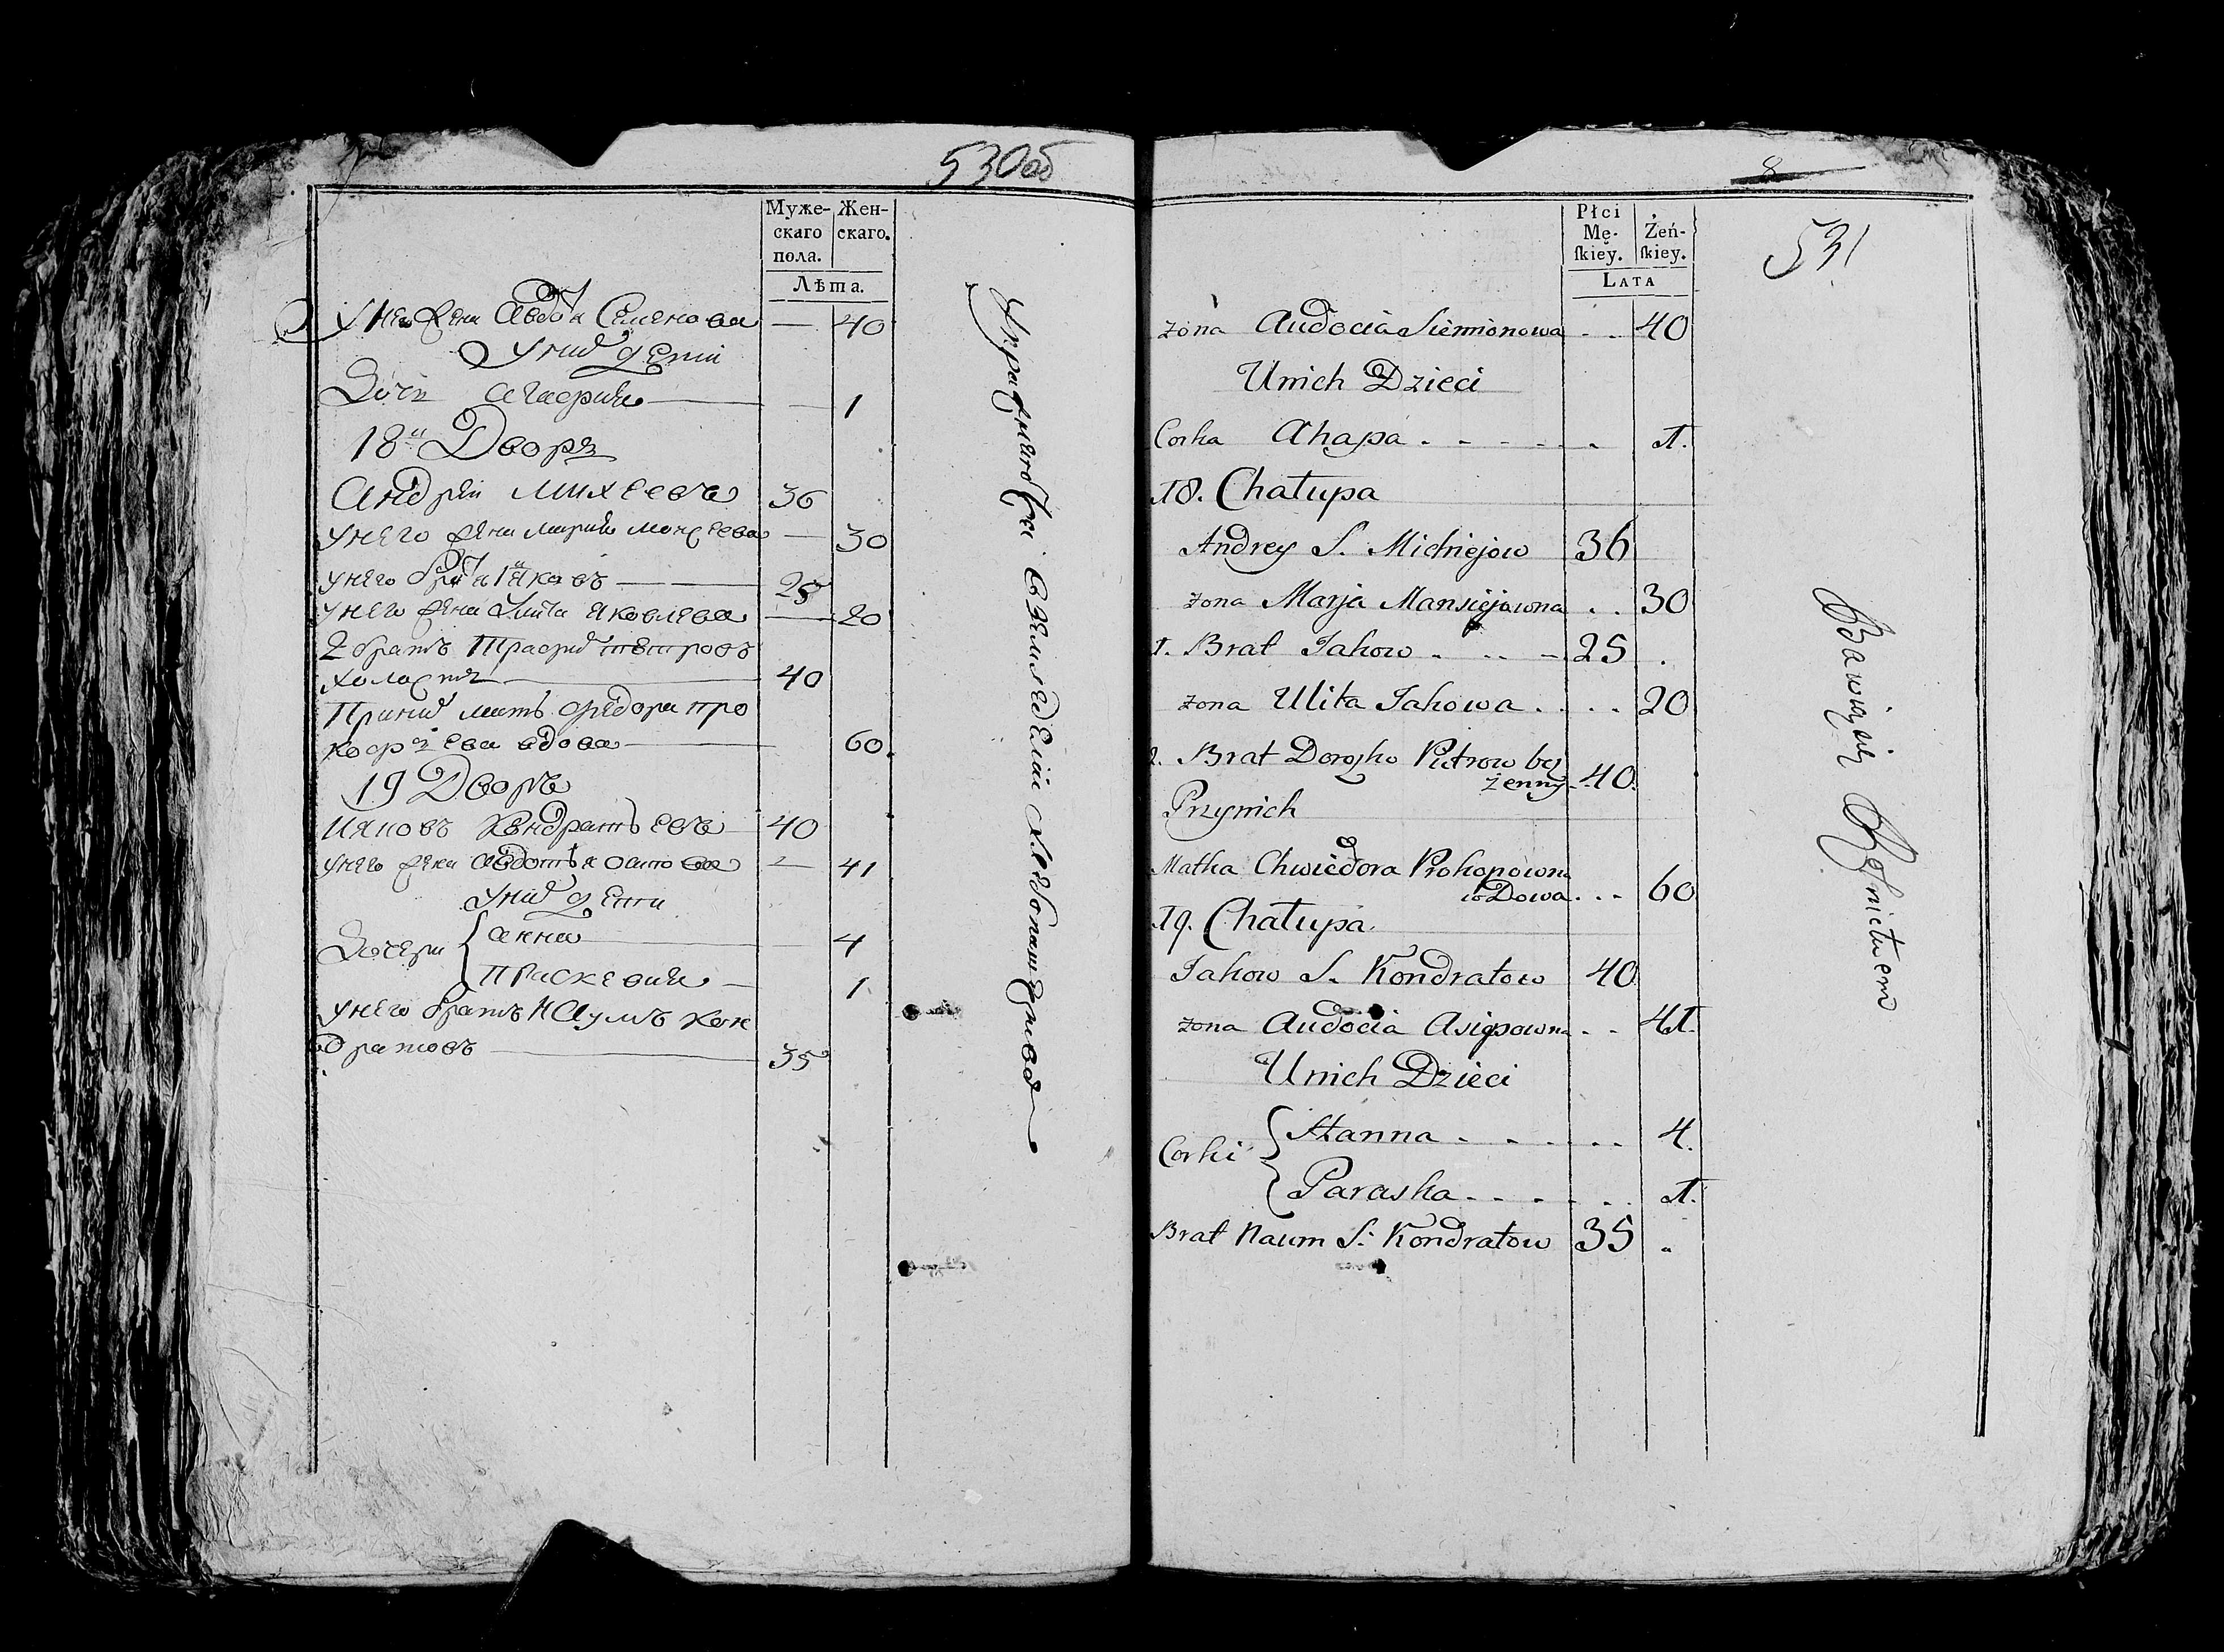 530об
Муже- Жен-
скаго скаго.
пола.
Лѣта.
У него жена Авдотя Семенова — 40
У них дети
Дочь Агафия — 1
18й Дворъ
Андрей Михеевъ 36
У него жена Мария — 30
У него братя 1й Яковъ — 25
У него жена Улита Яковлева — 20
2 братъ Петровъ
холастъ — 40
При них мать Федора Про
кофьева вдова — 60
19 Дворъ
Яковъ Кондратьевъ 40
У него жена Авдотья — 41
У них дети
Дочери { Анна — 4
Праскевия — 1
У него братъ Наумъ Кон
дратовъ — 35
8
531
Płci Żeń-
Mę- skiey.
skiey.
LATA
żona Audocia Siemionowa - - 40
Unich Dzieci
Corka Ahapa - - - - - 1.
18. Chałupa
Andrey S. Michiejow 36
żona Marja . . 30
1. Brat Jakow - - - 25
żona Ulita Jakowa . . . . 20
2. Brat Piotrow bez
żenny 40.
Przynich
Matka Chwiedora Prokopowna
wDowa . . . 60
19. Chałupa.
Jakow S. Kondratow 40
żona Audocia Asipowna - - 41.
Unich Dzieci
Corki { Hanna - - - - - - 4.
Paraska - - - - - - 1.
Brat Naum S. Kondratow 35
Bawią się Rolnictwem